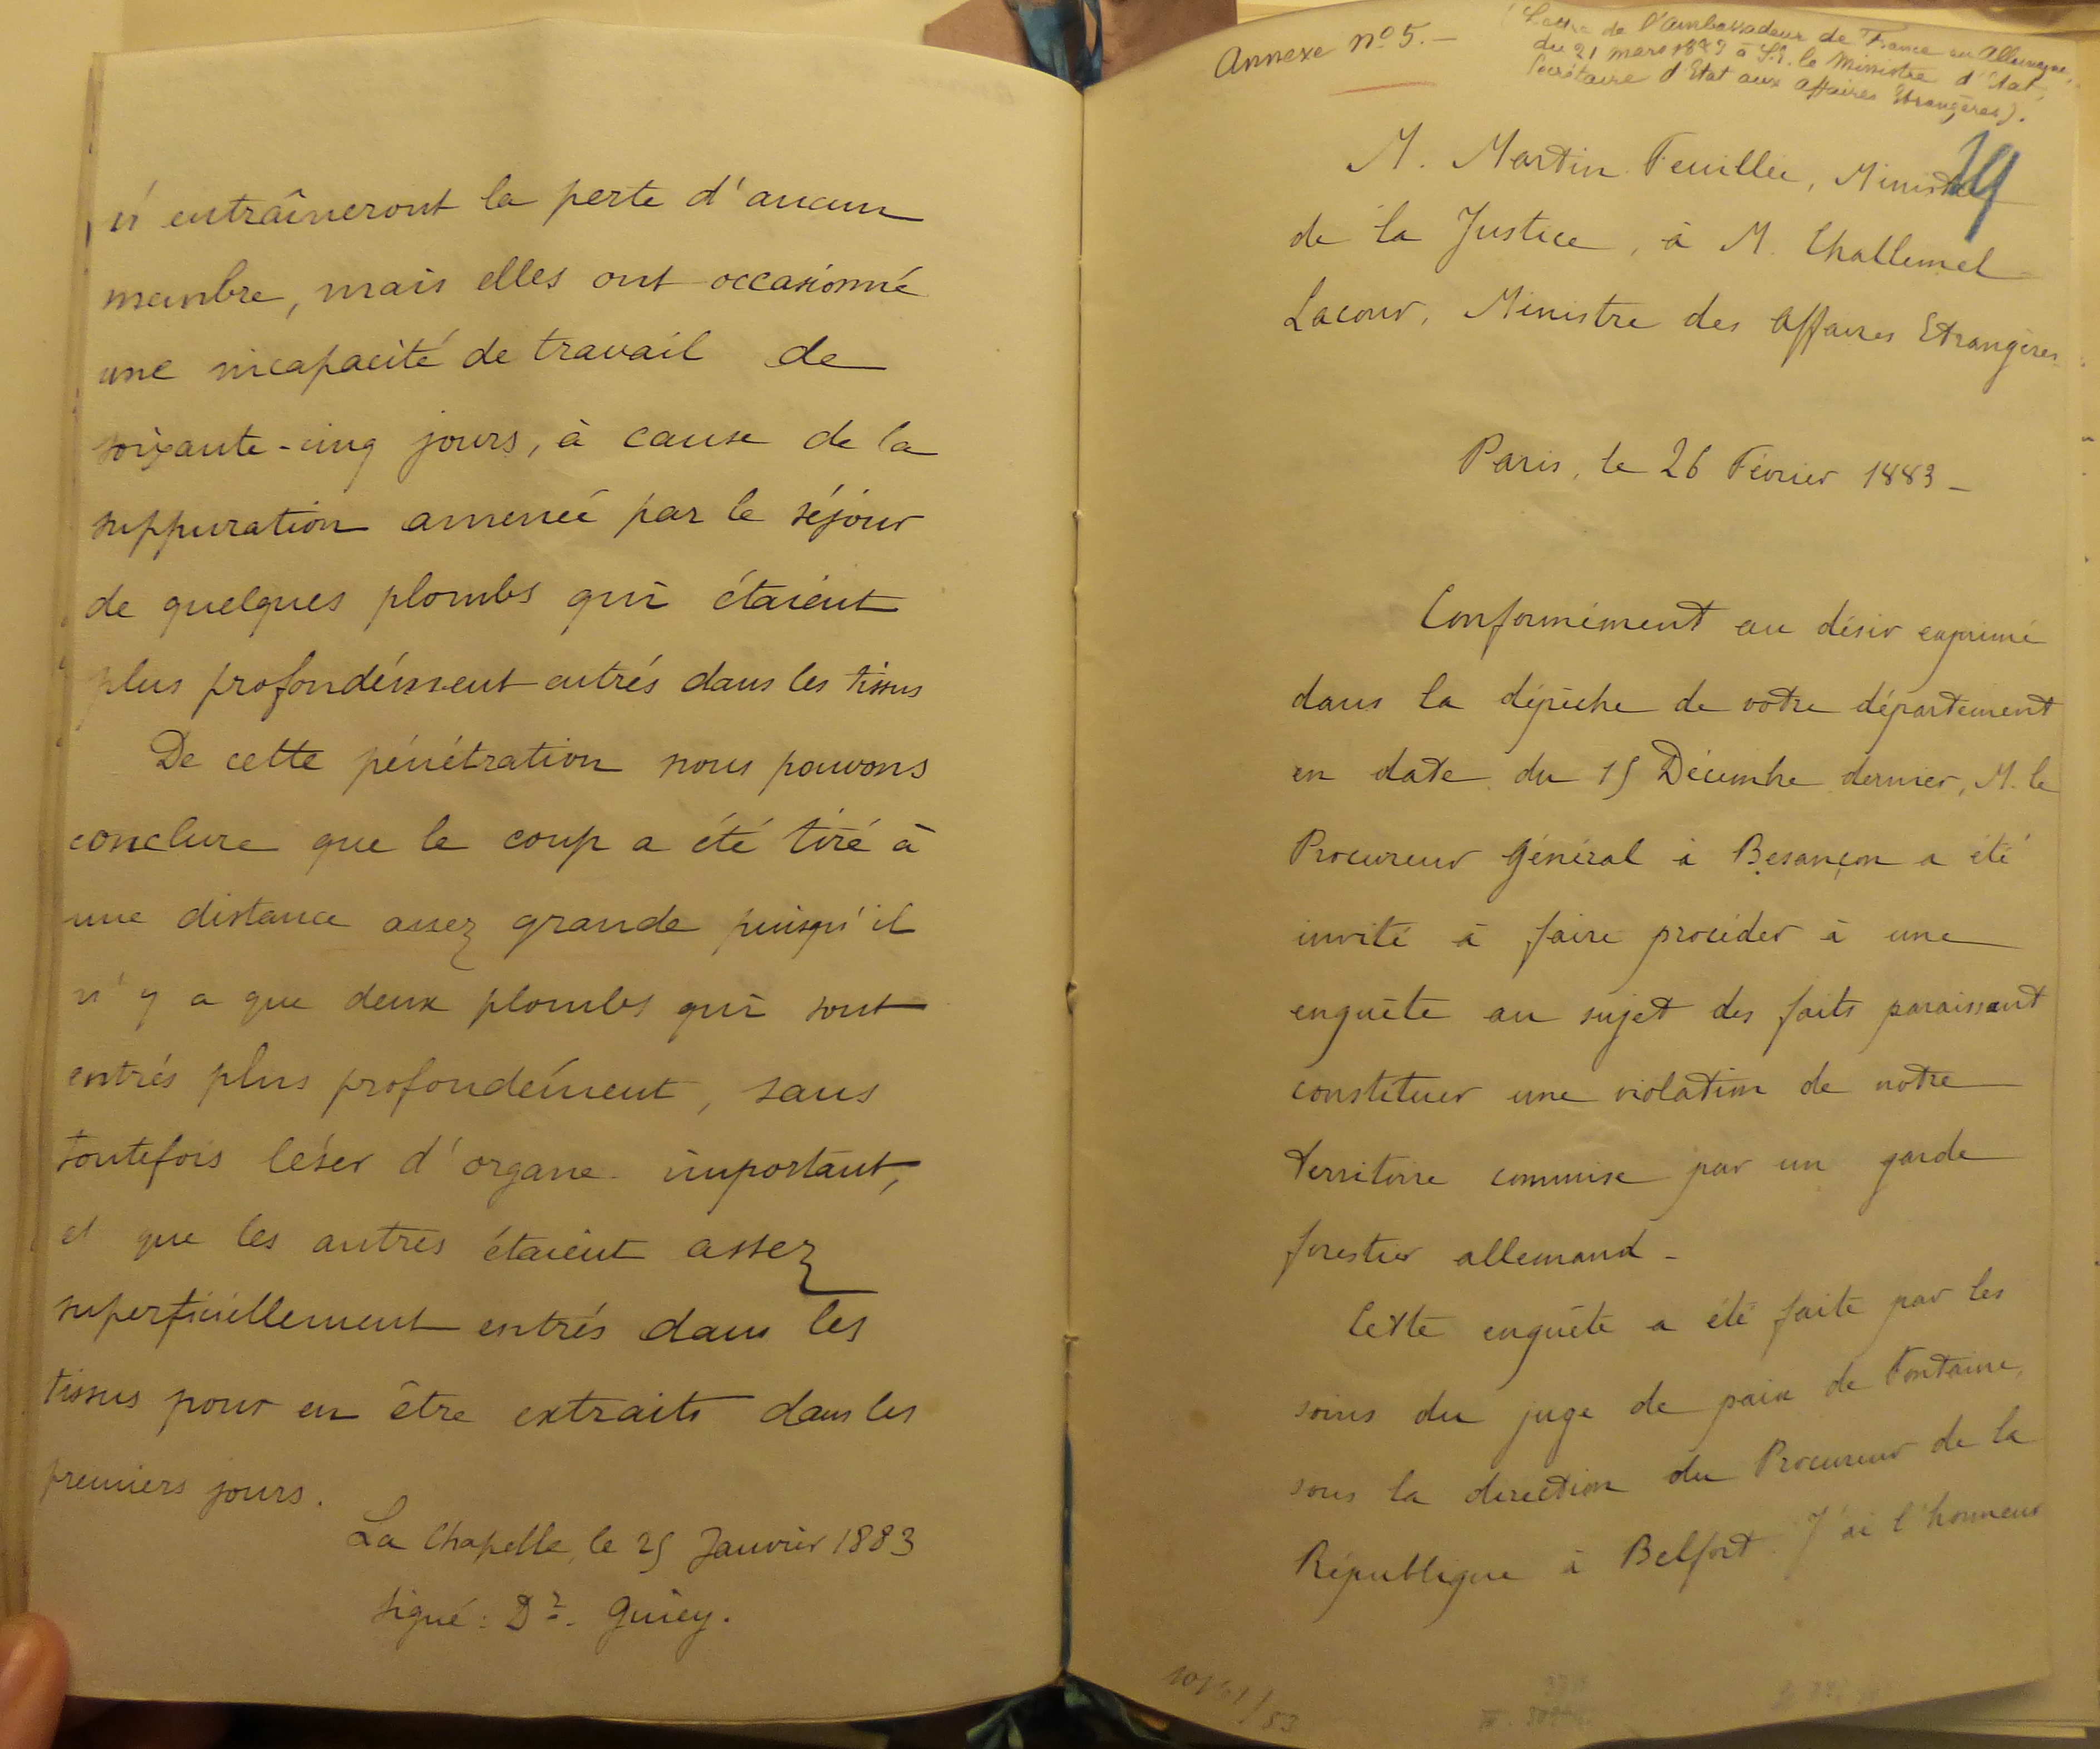 n'entraîneront la perte d'aucun
membre, mais elles ont occasionné
une incapacité de travail de
soixante-cinq jours, à cause de la
suppuration amenée par le séjour
de quelques plombs qui étaient
plus profondément entrés dans les tissus
De cette pénétration nous pouvons
conclure que le coup a été tiré à
une distance assez grande puisqu'il
n'y a que deux plombs qui sont
entrés plus profondément, sans
toutefois léser d'organe important,
et que les autres étaient assez
superficiellement entrés dans les
tissus pour en être extraits dans les
premiers jours.
La Chapelle, le 25 Janvier 1883
signé: Dr. Guiey.
Annexe no 5.-
(Lettre de l'Ambassadeur de France en Allemagne,
du 21 mars 1883 à S.E. le Ministre d'Etat,
Secrétaire d'Etat aux Affaires Etrangères).
M. Martin Feuillée, Ministre
de la Justice, à M. Challemel
Lacour, Ministre des Affaires Etrangères
Paris, le 26 Février 1883-
Conformément au désir exprimé
dans la dépêche de votre département
en date du 15 Décembre dernier, M. le
Procureur Général à Besançon a été
invité à faire procéder à une
enquête au sujet des faits paraissant
constituer une violation de notre
territoire commise par un garde
forestier allemand-
Cette enquête a été faite par les
soins du juge de paix de Fontaine,
sous la direction du Procureur de la
République à Belfort. J'ai l'honneur